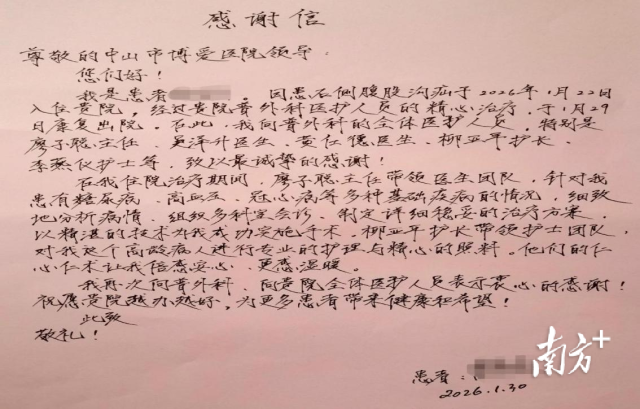 感谢信
尊敬的中山市博爱医院领导：
您们好！
我是患者 因患右侧腹股沟疝于2026年1月22日
入住贵院，经过贵院普外科医护人员的精心治疗，于1月29
日康复出院。在此，我向普外科的全体医护人员，特别是
廖子聪主任、吴泽升医生、黄仕僡医生、柳亚平护长、
李燕仪护士等，致以最诚挚的感谢！
在我住院治疗期间，廖子聪主任带领医生团队，针对我
患有糖尿病、高血压、冠心病等多种基础疾病的情况，细致
地分析病情、组织多科室会诊、制定详细稳妥的治疗方案，
以精湛的技术为我成功实施手术。柳亚平护长带领护士团队，
对我这个高龄病人进行专业的护理与精心的照料。他们的仁
心仁术让我倍感安心、更感温暖。
我再次向普外科、向贵院全体医护人员表示衷心的感谢！
祝愿贵院越办越好，为更多患者带来健康和希望！
此致
敬礼！
患者：
2026.1.30
南方+